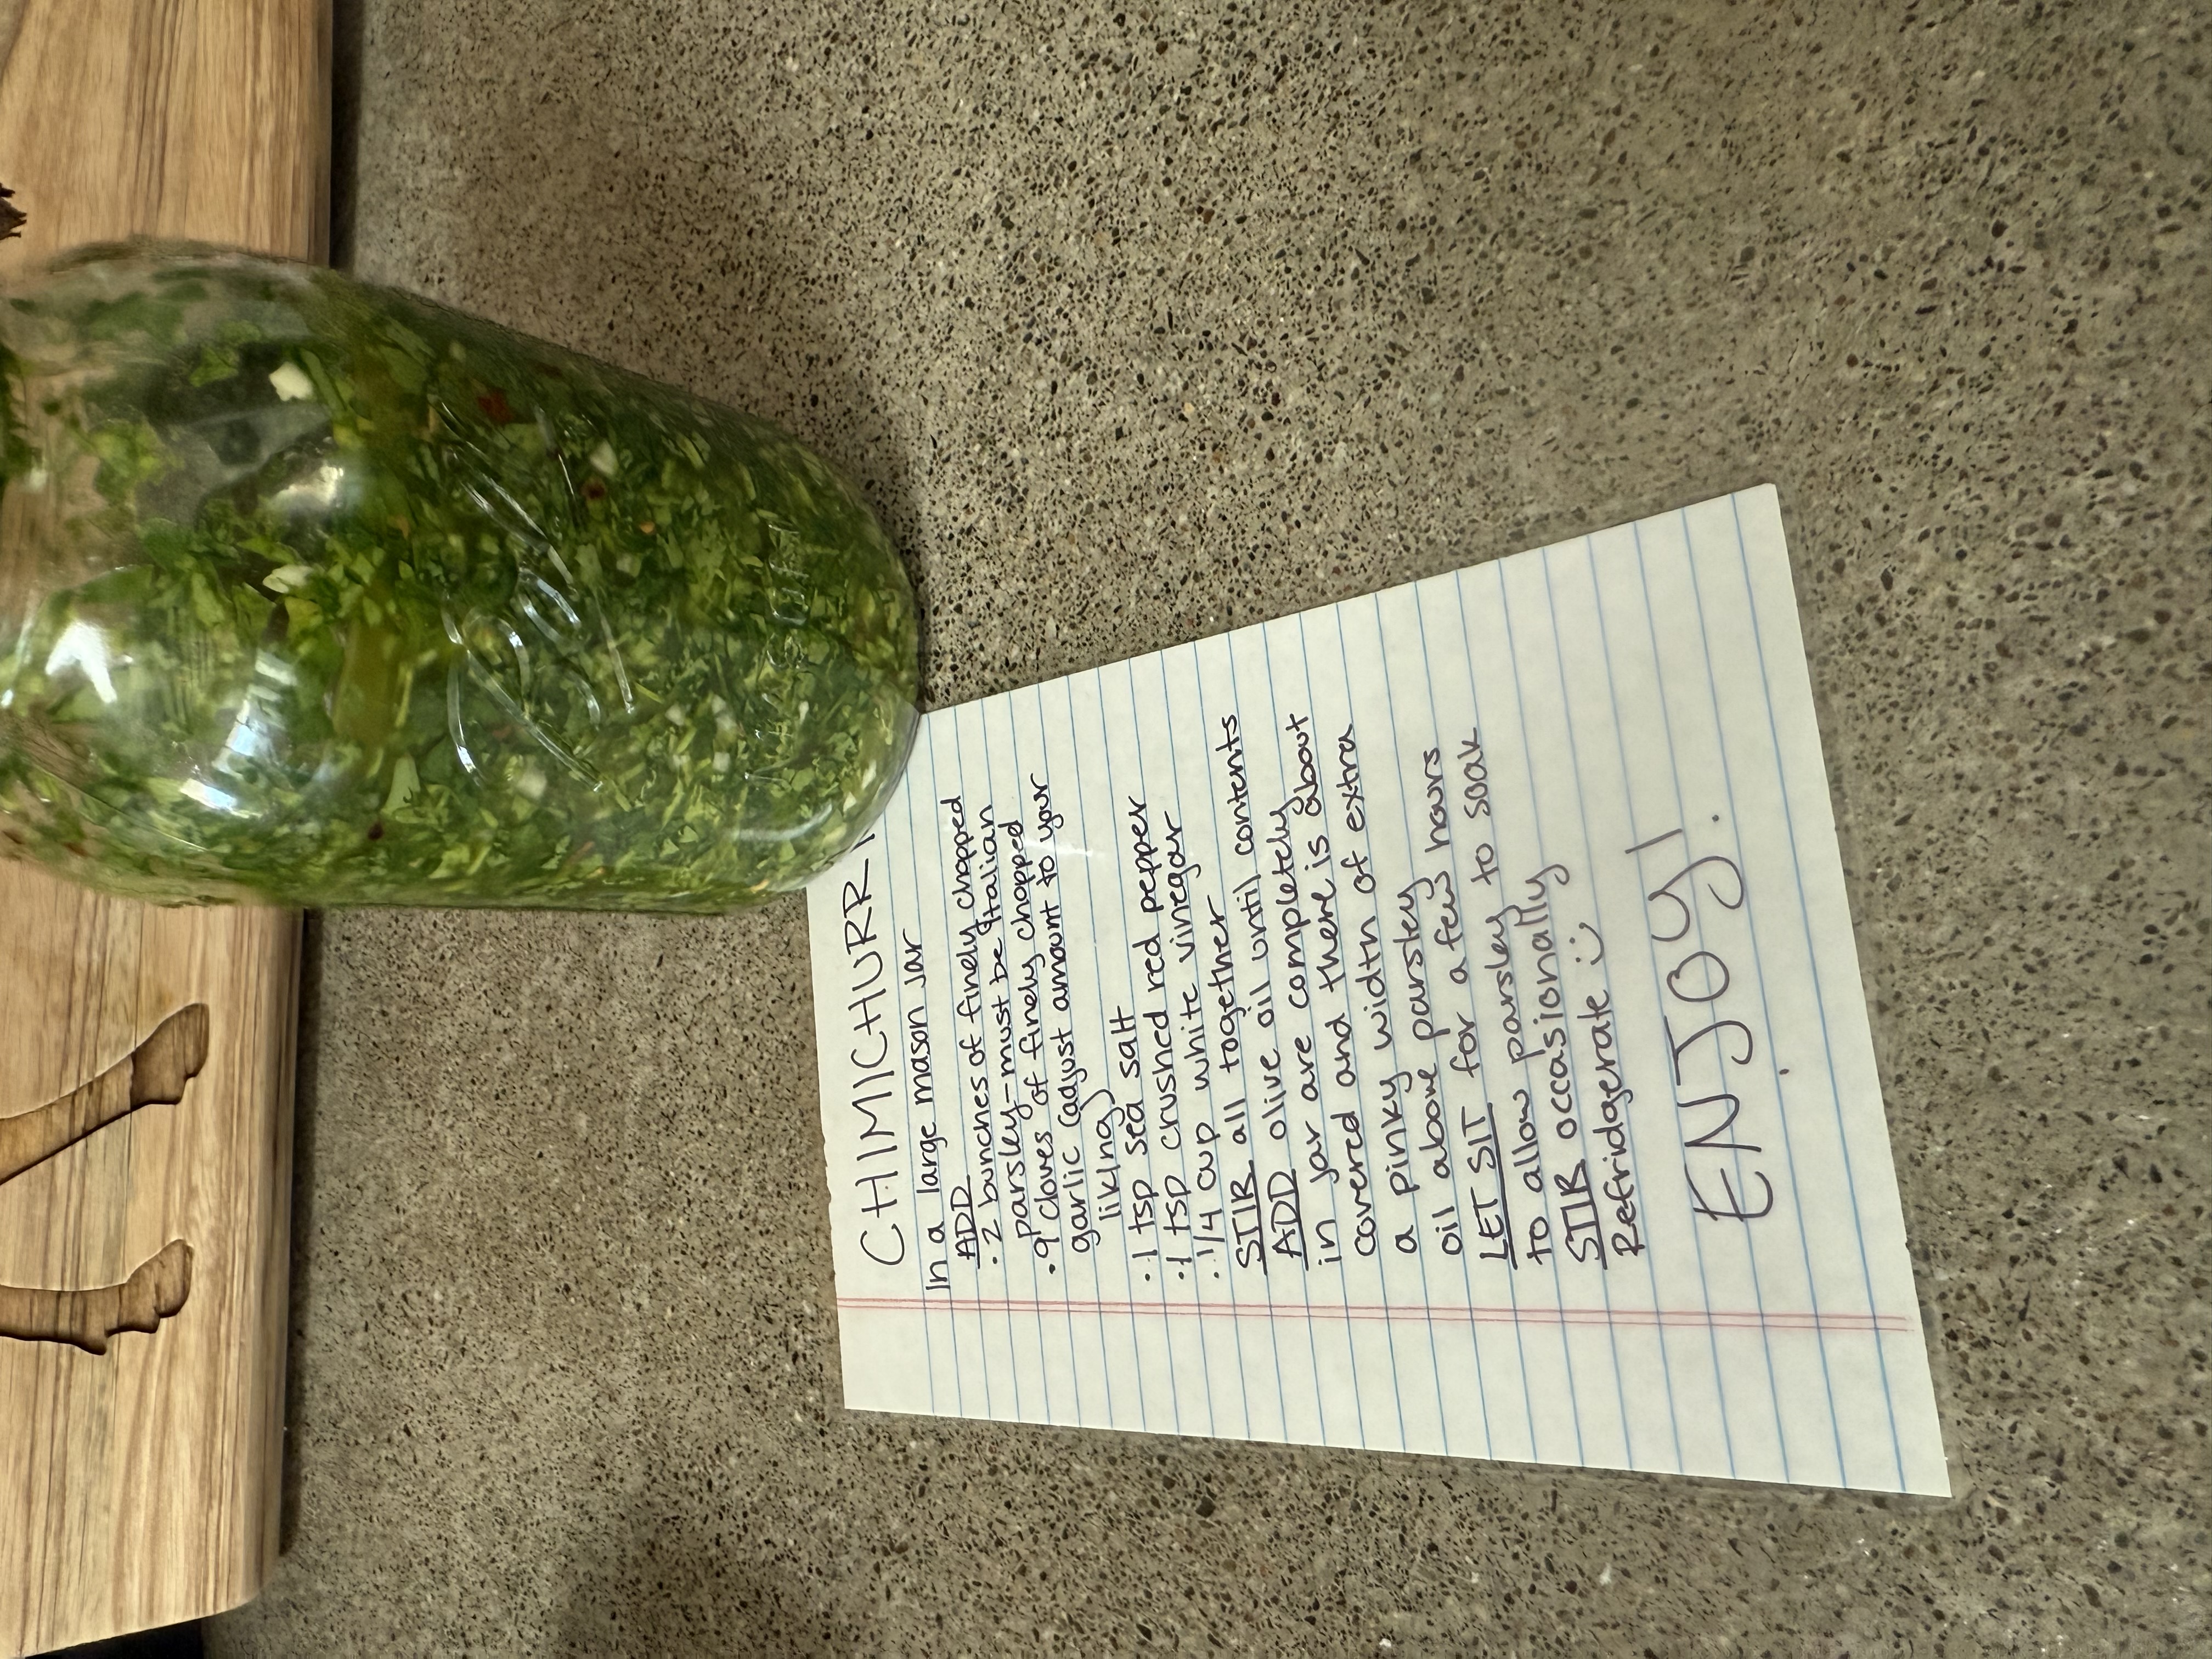 CHIMICHURRI
In a large mason jar
ADD
· 2 bunches of finely chopped
parsley-must be Italian
· 9 cloves of finely chopped
garlic (adjust amount to your
liking)
· 1 tsp sea salt
· 1 tsp crushed red pepper
· 1/4 cup white vinegar
STIR all together
ADD olive oil until contents
in jar are completely
covered and there is about
a pinky width of extra
oil above parsley
LET SIT for a few hours
to allow parsley to soak
STIR occasionally
Refridgerate :)
ENJOY!